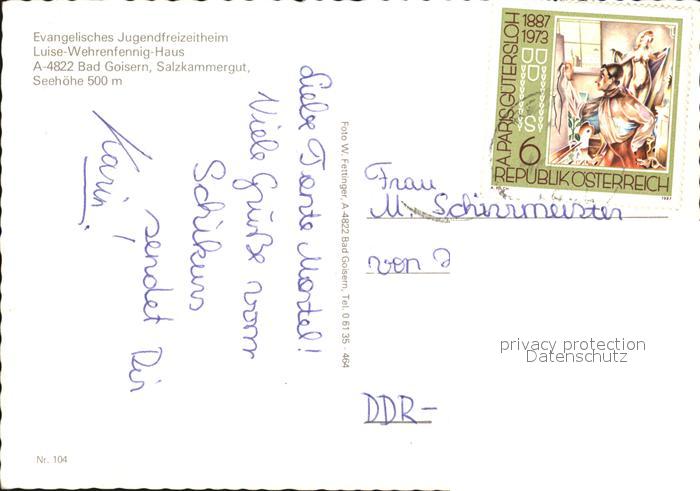 Evangelisches Jugendfreizeitheim
Luise-Wehrenfennig-Haus
A-4822 Bad Goisern, Salzkammergut,
Seehöhe 500 m
Liebe Tante Martel!
Viele Grüße vom
Schikurs
sendet Dir
Karin!
Nr. 104
Foto W. Fettinger, A-4822 Bad Goisern, Tel. 0 61 35 - 464
A.PARIS GÜTERSLOH
1887
1973
6
REPUBLIK ÖSTERREICH
1987
Frau
M. Schirrmeister
privacy protection
Datenschutz
DDR-